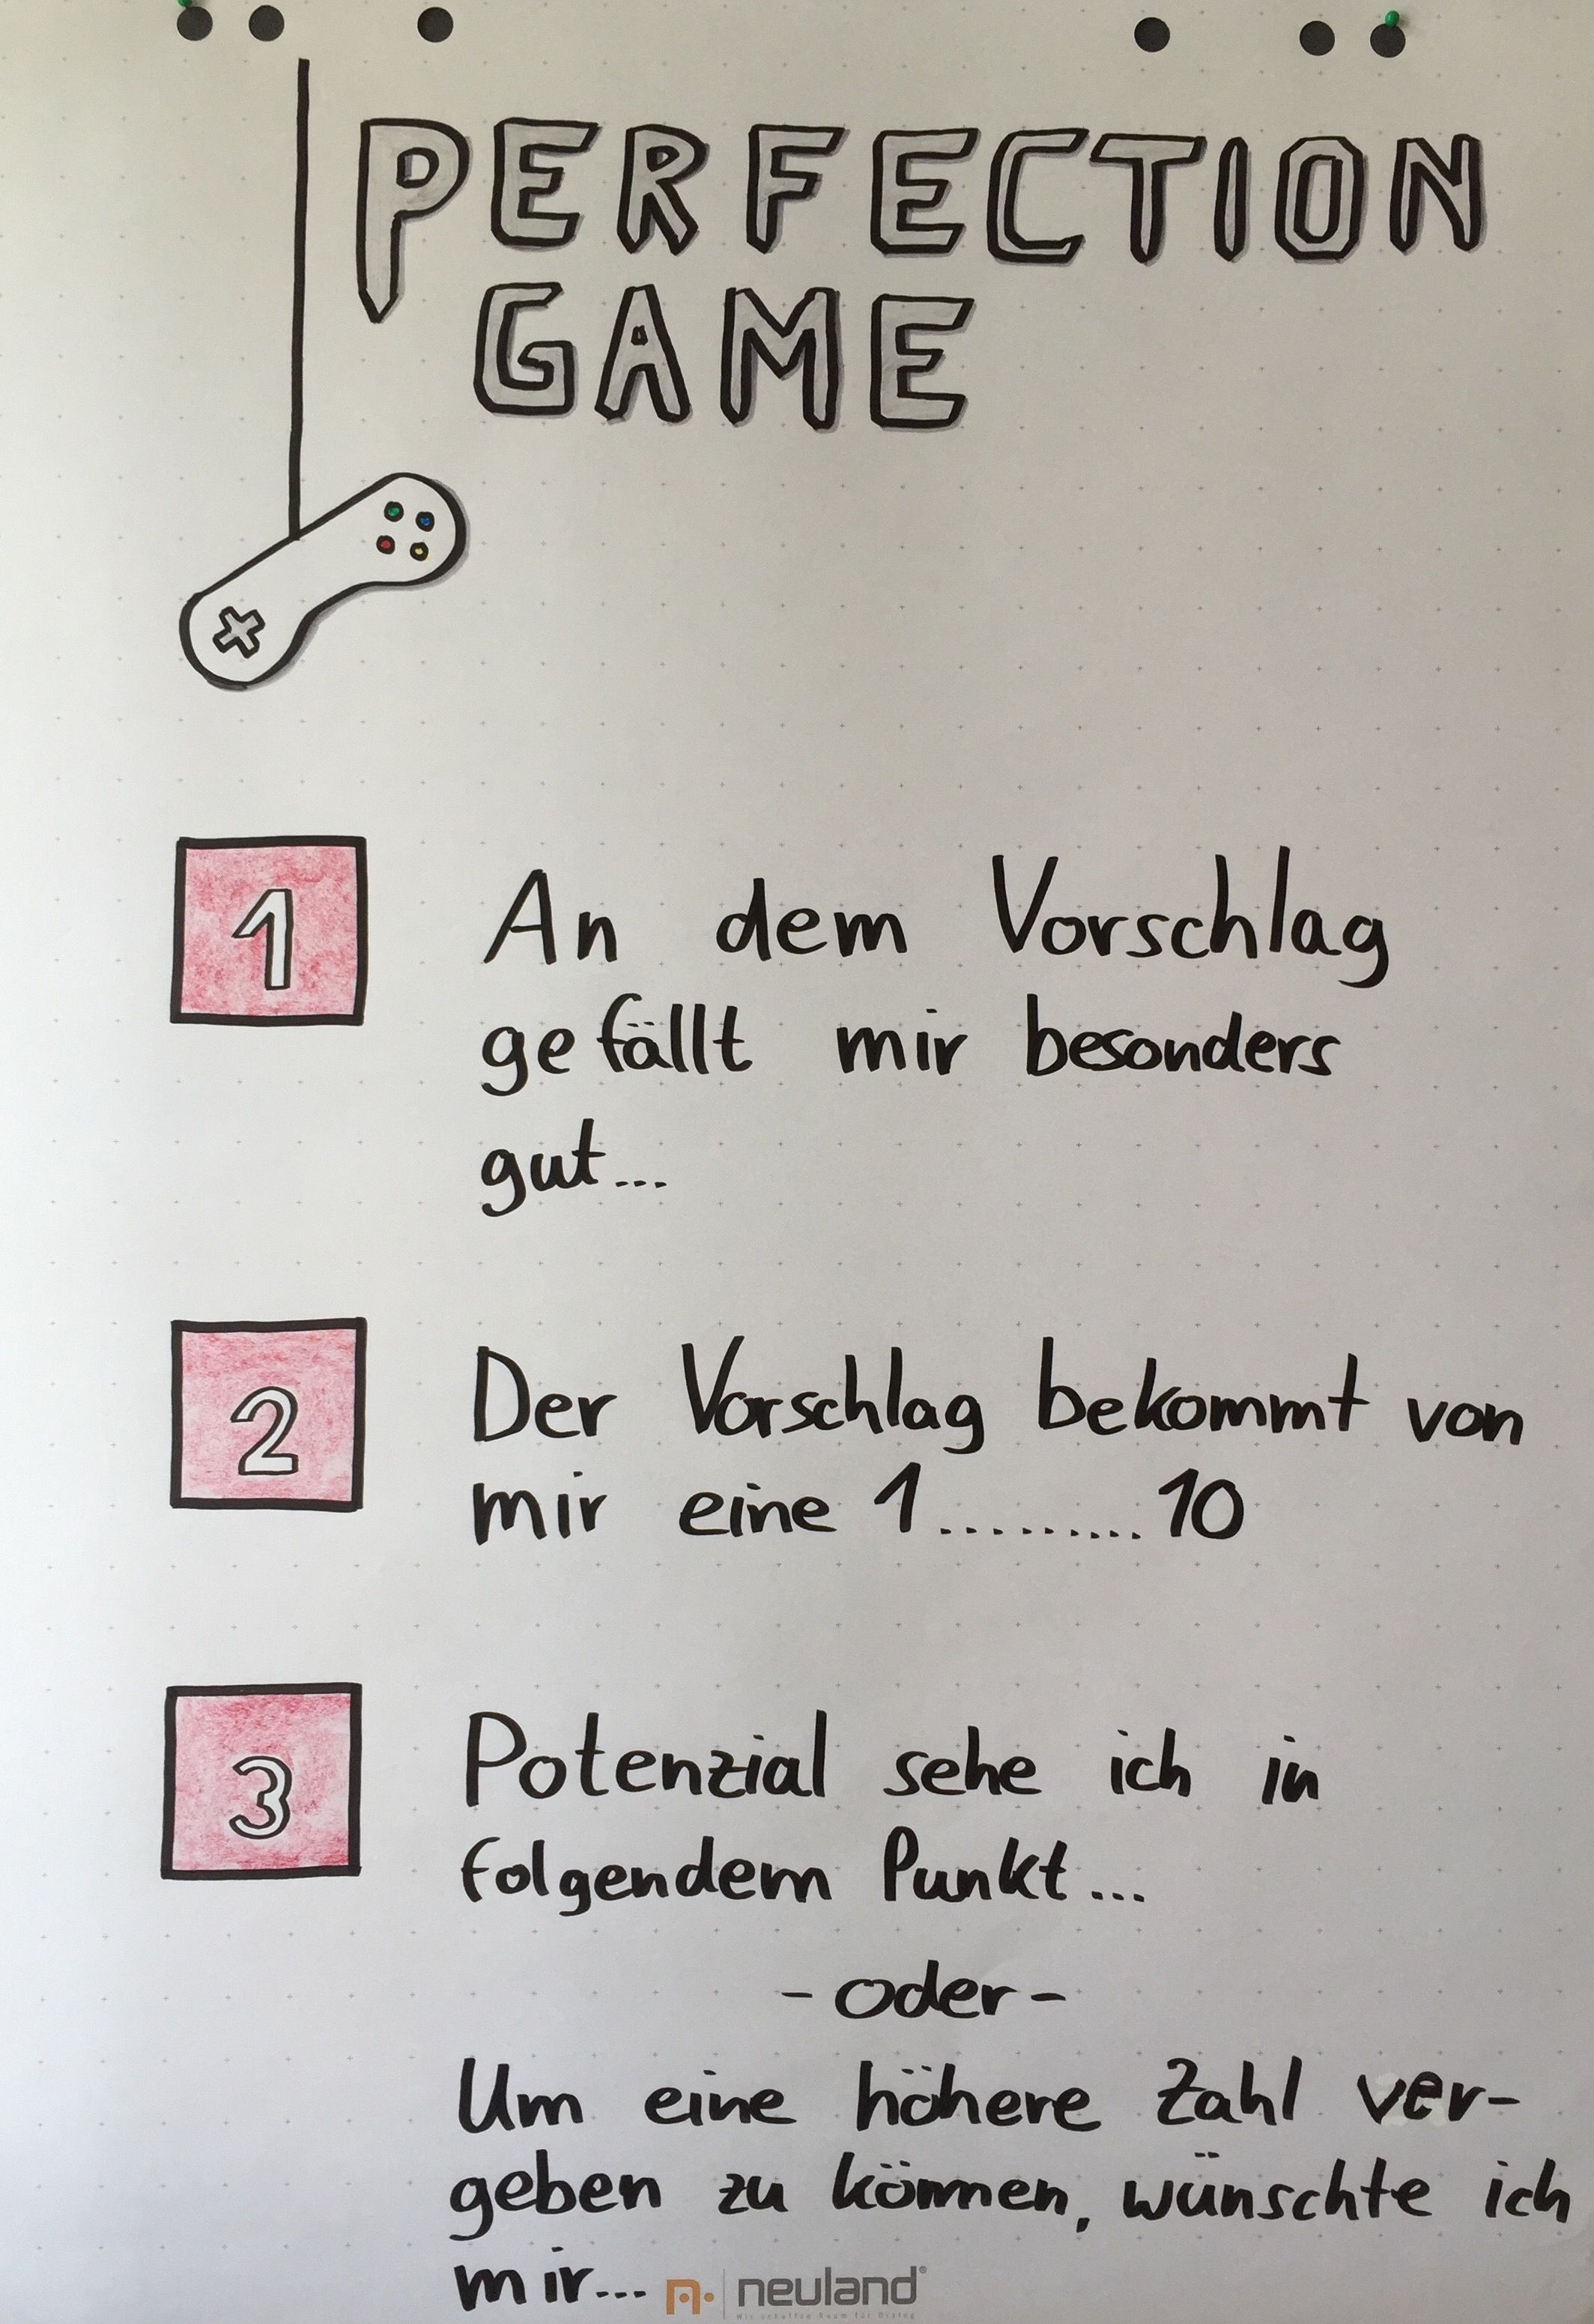 PERFECTION
GAME
1
An dem Vorschlag
gefällt mir besonders
gut...
2
Der Vorschlag bekommt von
mir eine 1.........10
3
Potenzial sehe ich in
folgendem Punkt...
- oder -
Um eine höhere Zahl ver-
geben zu können, wünschte ich
mir...
n. neuland®
Wir schaffen Raum für Dialog